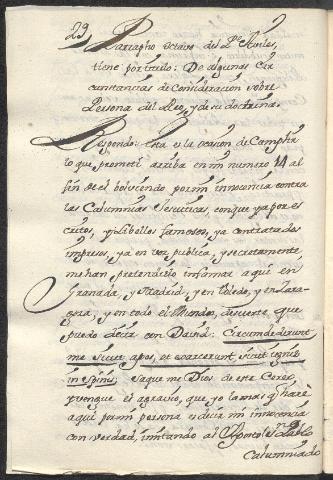 29,
Parrapho Octavo del Pe. Aviles,
tiene por titulo: De algunas Cir
cunstancias de Consideración sobre
Persona del Reo, y de su doctrina.
Respondo: Esta es la ocasion de Cumplir
lo que prometi arriba en mi numero 14 al
fin de el bolviendo por mi innocencia contra
las Calumnias Jesuiticas, con que ya por es
critos, y Libellos famosos, ya con tratados
impresos, ya en voz publica, y secretamente
me han pretendido infamar aqui en
Granada, y Madrid, y en Toledo, y en Zara
goza, y en todo el Mundo, de suerte, que
puedo decir con David: Circumdederunt
me sicut apes, et exarcerunt sicut ignis
in spinis; Saque me Dios de este Cerco,
y vengue el agravio, que yo lo mas q hare
aqui por mi persona es decir mi innocencia
con verdad, imitando al Apostol Sn. Pablo
Calumniado